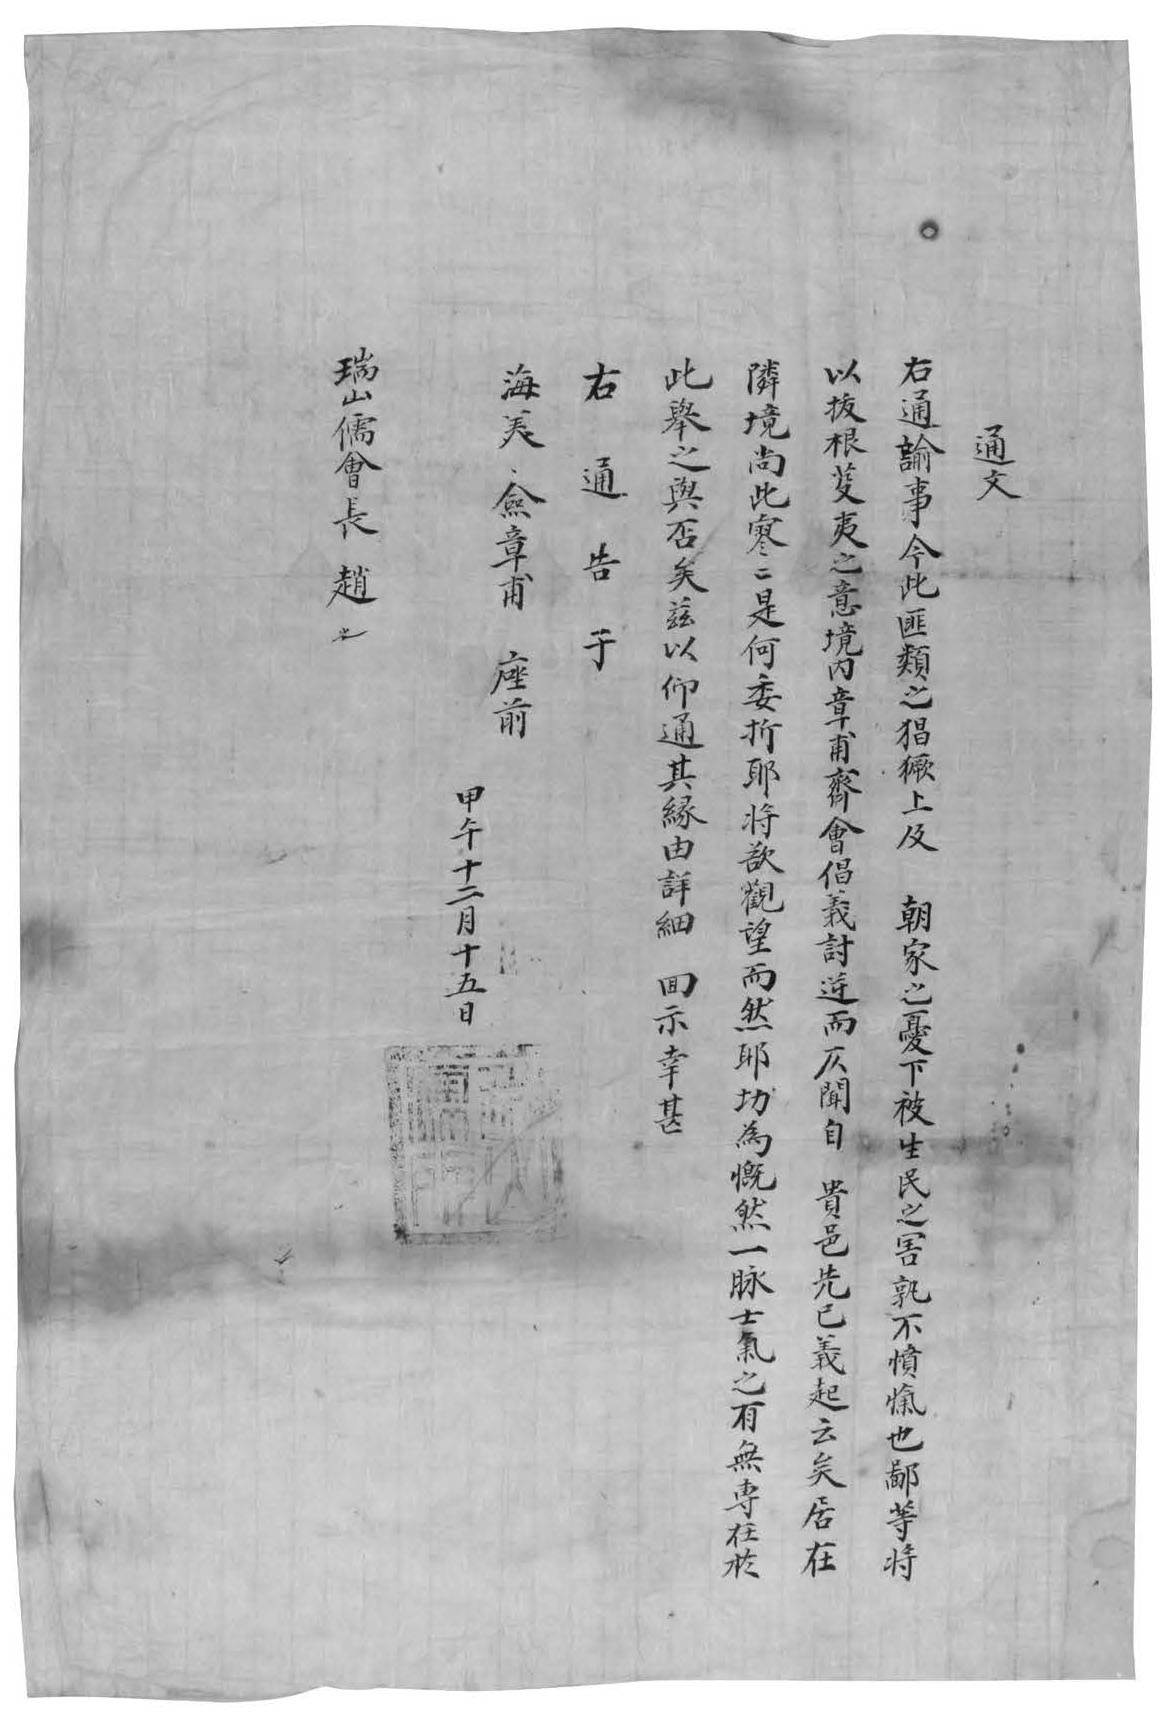 通文
右通諭事今此匪類之猖獗上及 朝家之憂下被生民之害孰不憤愾也鄙等將
以拔根芟夷之意境內章甫齊會倡義討逆而仄聞自 貴邑先已義起云矣居在
隣境尚此寥〻是何委折耶將欲觀望而然耶切為慨然一脉士氣之有無專在於
此舉之與否矣玆以仰通其緣由詳細 回示幸甚
右通告于
海美 僉章甫 座前
甲午十二月十五日
瑞山儒會長 趙